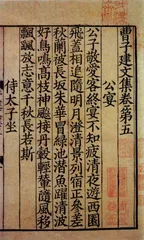 曹子建文集卷第五
公宴
公子敬愛客終宴不知疲清夜遊西園
飛蓋相追隨明月澄清景列宿正參差
秋蘭被長坂朱華冒綠池潛魚躍清波
好鳥鳴高枝神飈接丹轂輕輦隨風移
飄颻放志意千秋長若斯
侍太子坐